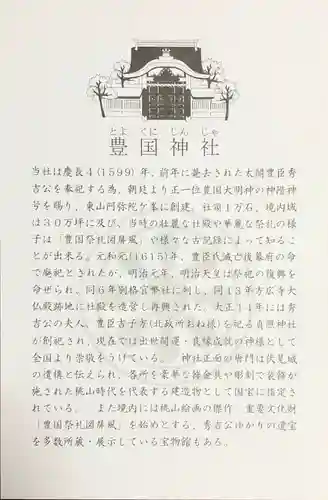 とよくにじんじゃ
豊国神社
当社は慶長4(1599)年、前年に薨去された太閤豊臣秀
吉公を奉祀する為、朝廷より正一位豊国大明神の神階神
号を賜り、東山阿弥陀ケ峯に創建。社領1万石、境内域
は30万坪に及び、当時の壮麗な社殿や華麗な祭礼の様
子は「豊国祭礼図屏風」や様々な古記録によって知るこ
とが出来る。元和元(1615)年、豊臣氏滅亡後幕府の命
で廃祀とされたが、明治元年、明治天皇は祭祀の復興を
命ぜられ、同6年別格官幣社に列し、同13年方広寺大
仏殿跡地に社殿を造営し再興された。大正14年には秀
吉公の夫人、豊臣吉子方(北政所おね様)を祀る貞照神社
が創祀され、現在では出世開運・良縁成就の神様として
全国より崇敬をうけている。 神社正面の唐門は伏見城
の遺構と伝えられ、各所を豪華な錺金具や彫刻で装飾が
施された桃山時代を代表する建造物として国宝に指定さ
れている。 また境内には桃山絵画の傑作 重要文化財
「豊国祭礼図屏風」を始めとする、秀吉公ゆかりの遺宝
を多数所蔵・展示している宝物館もある。